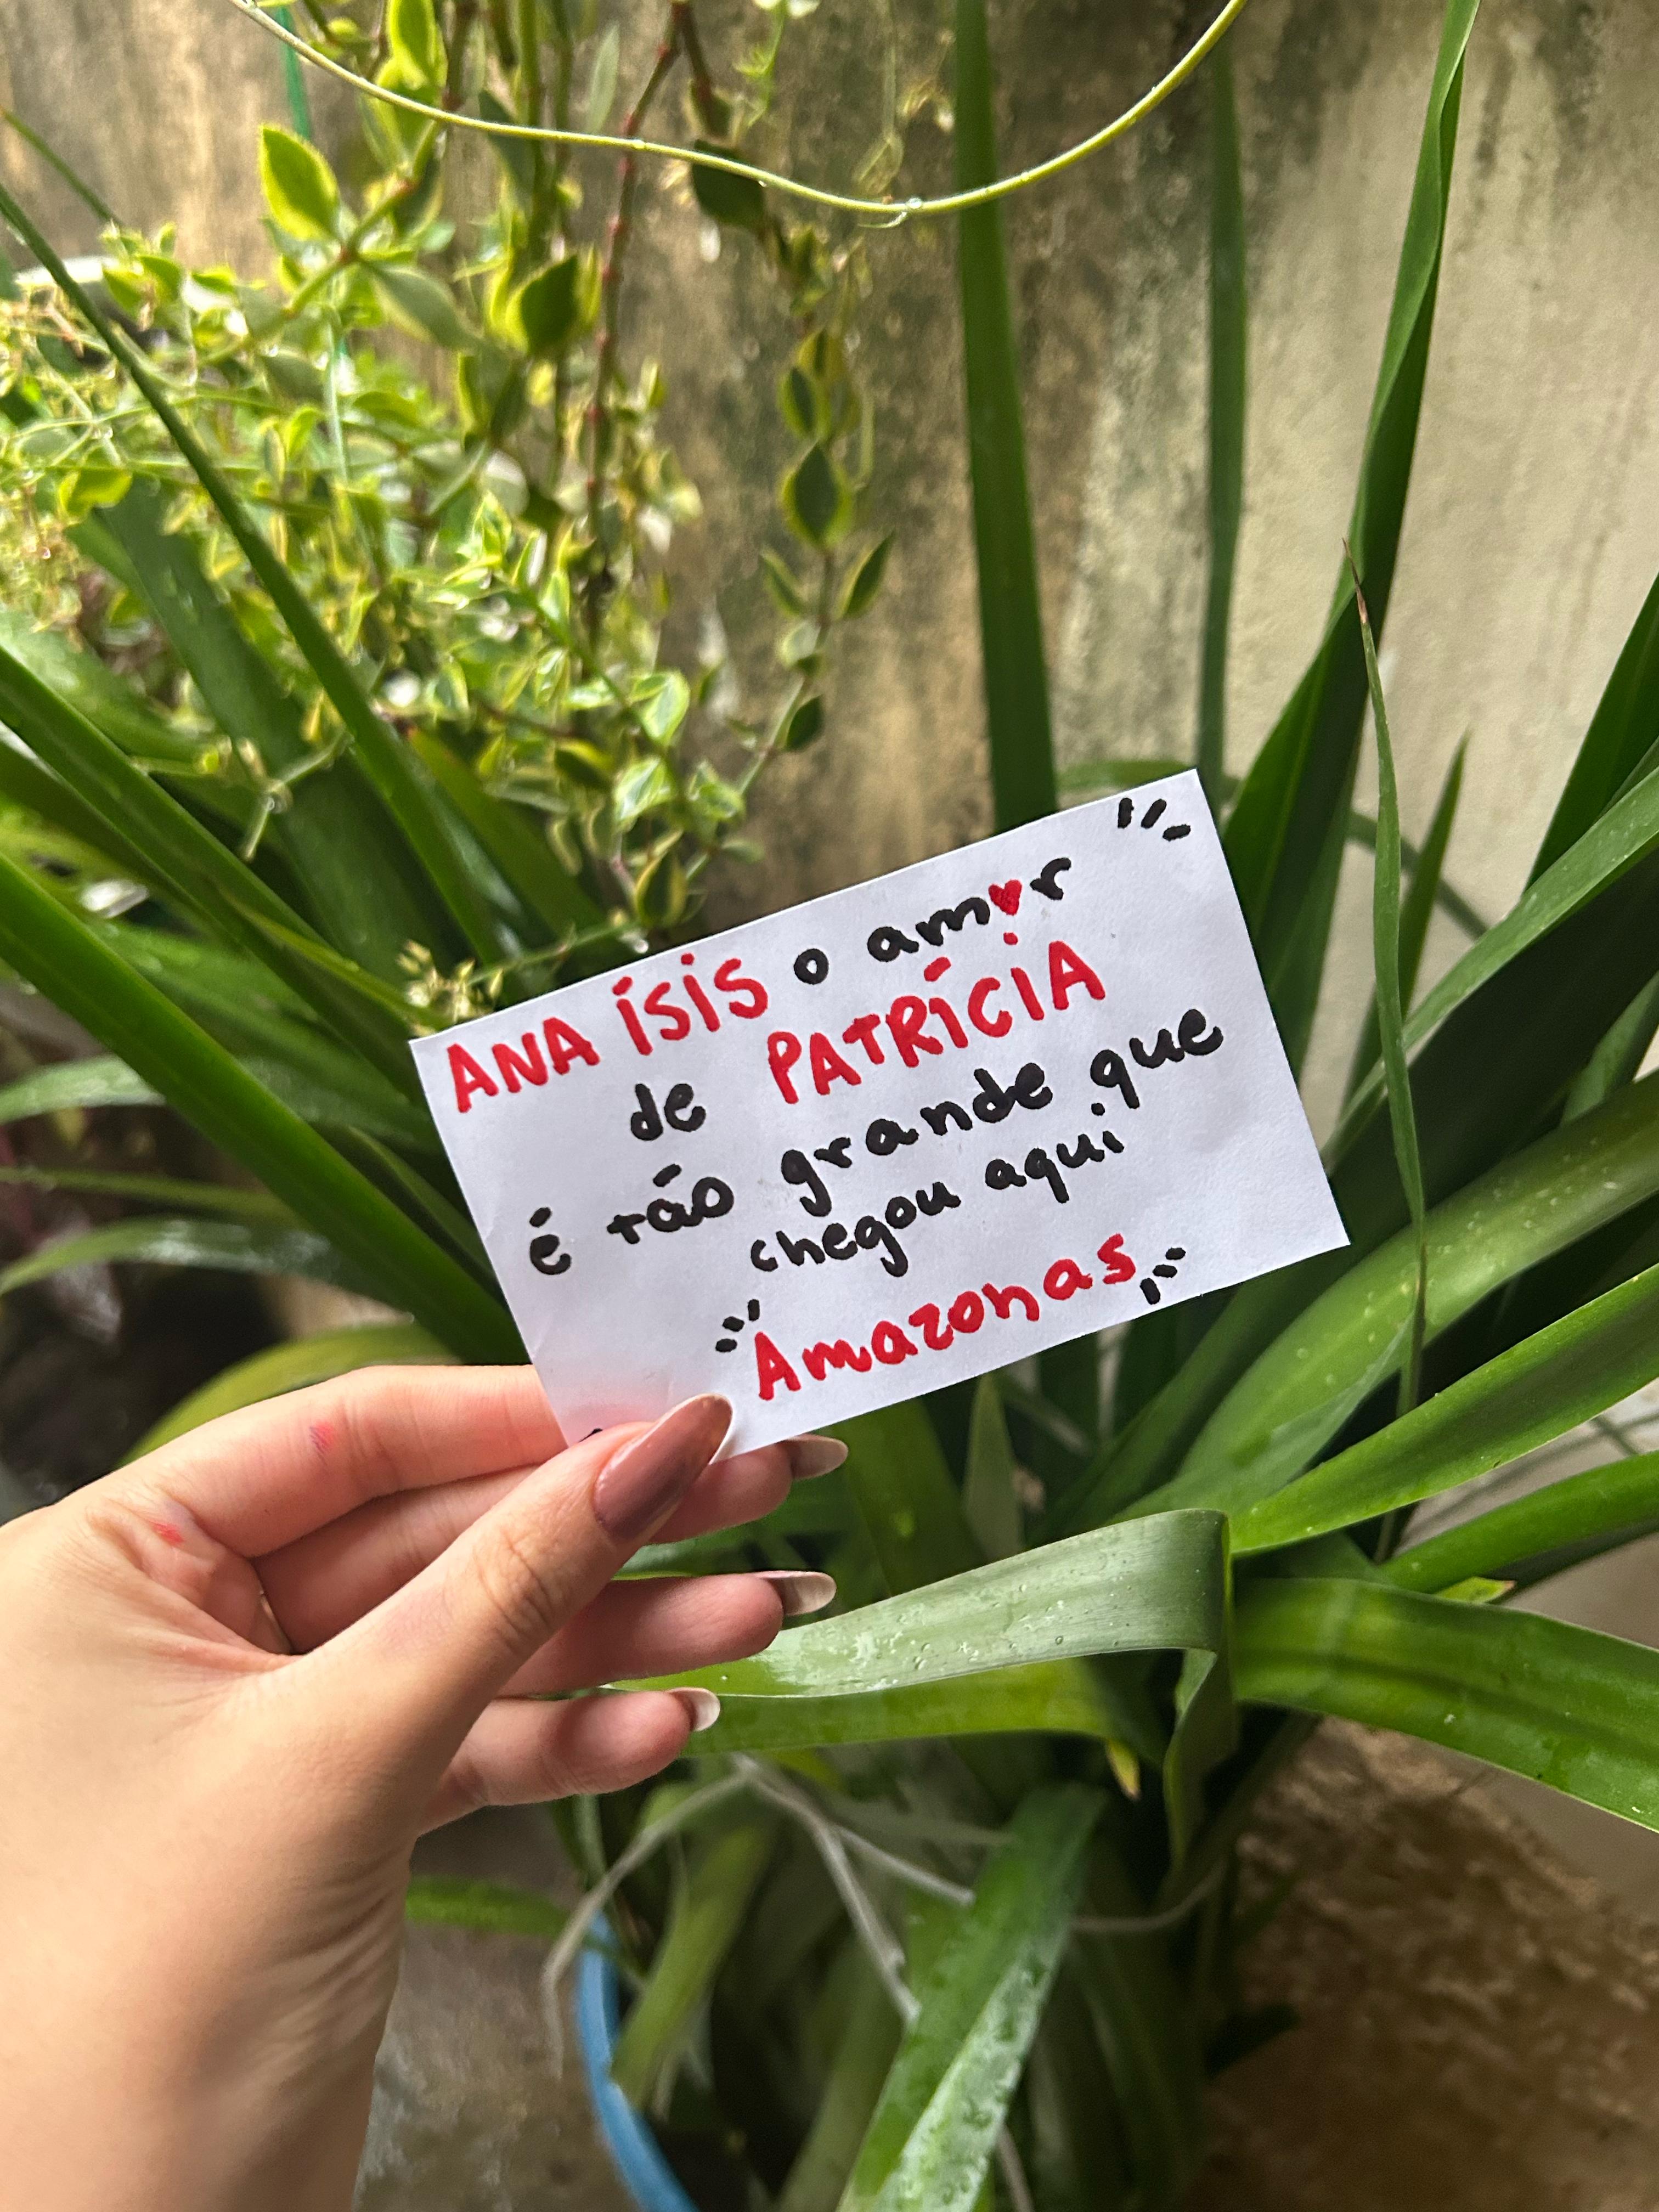 ANA ÍSIS o am♥r
de PATRÍCIA
é tão grande que
chegou aqui
Amazonas